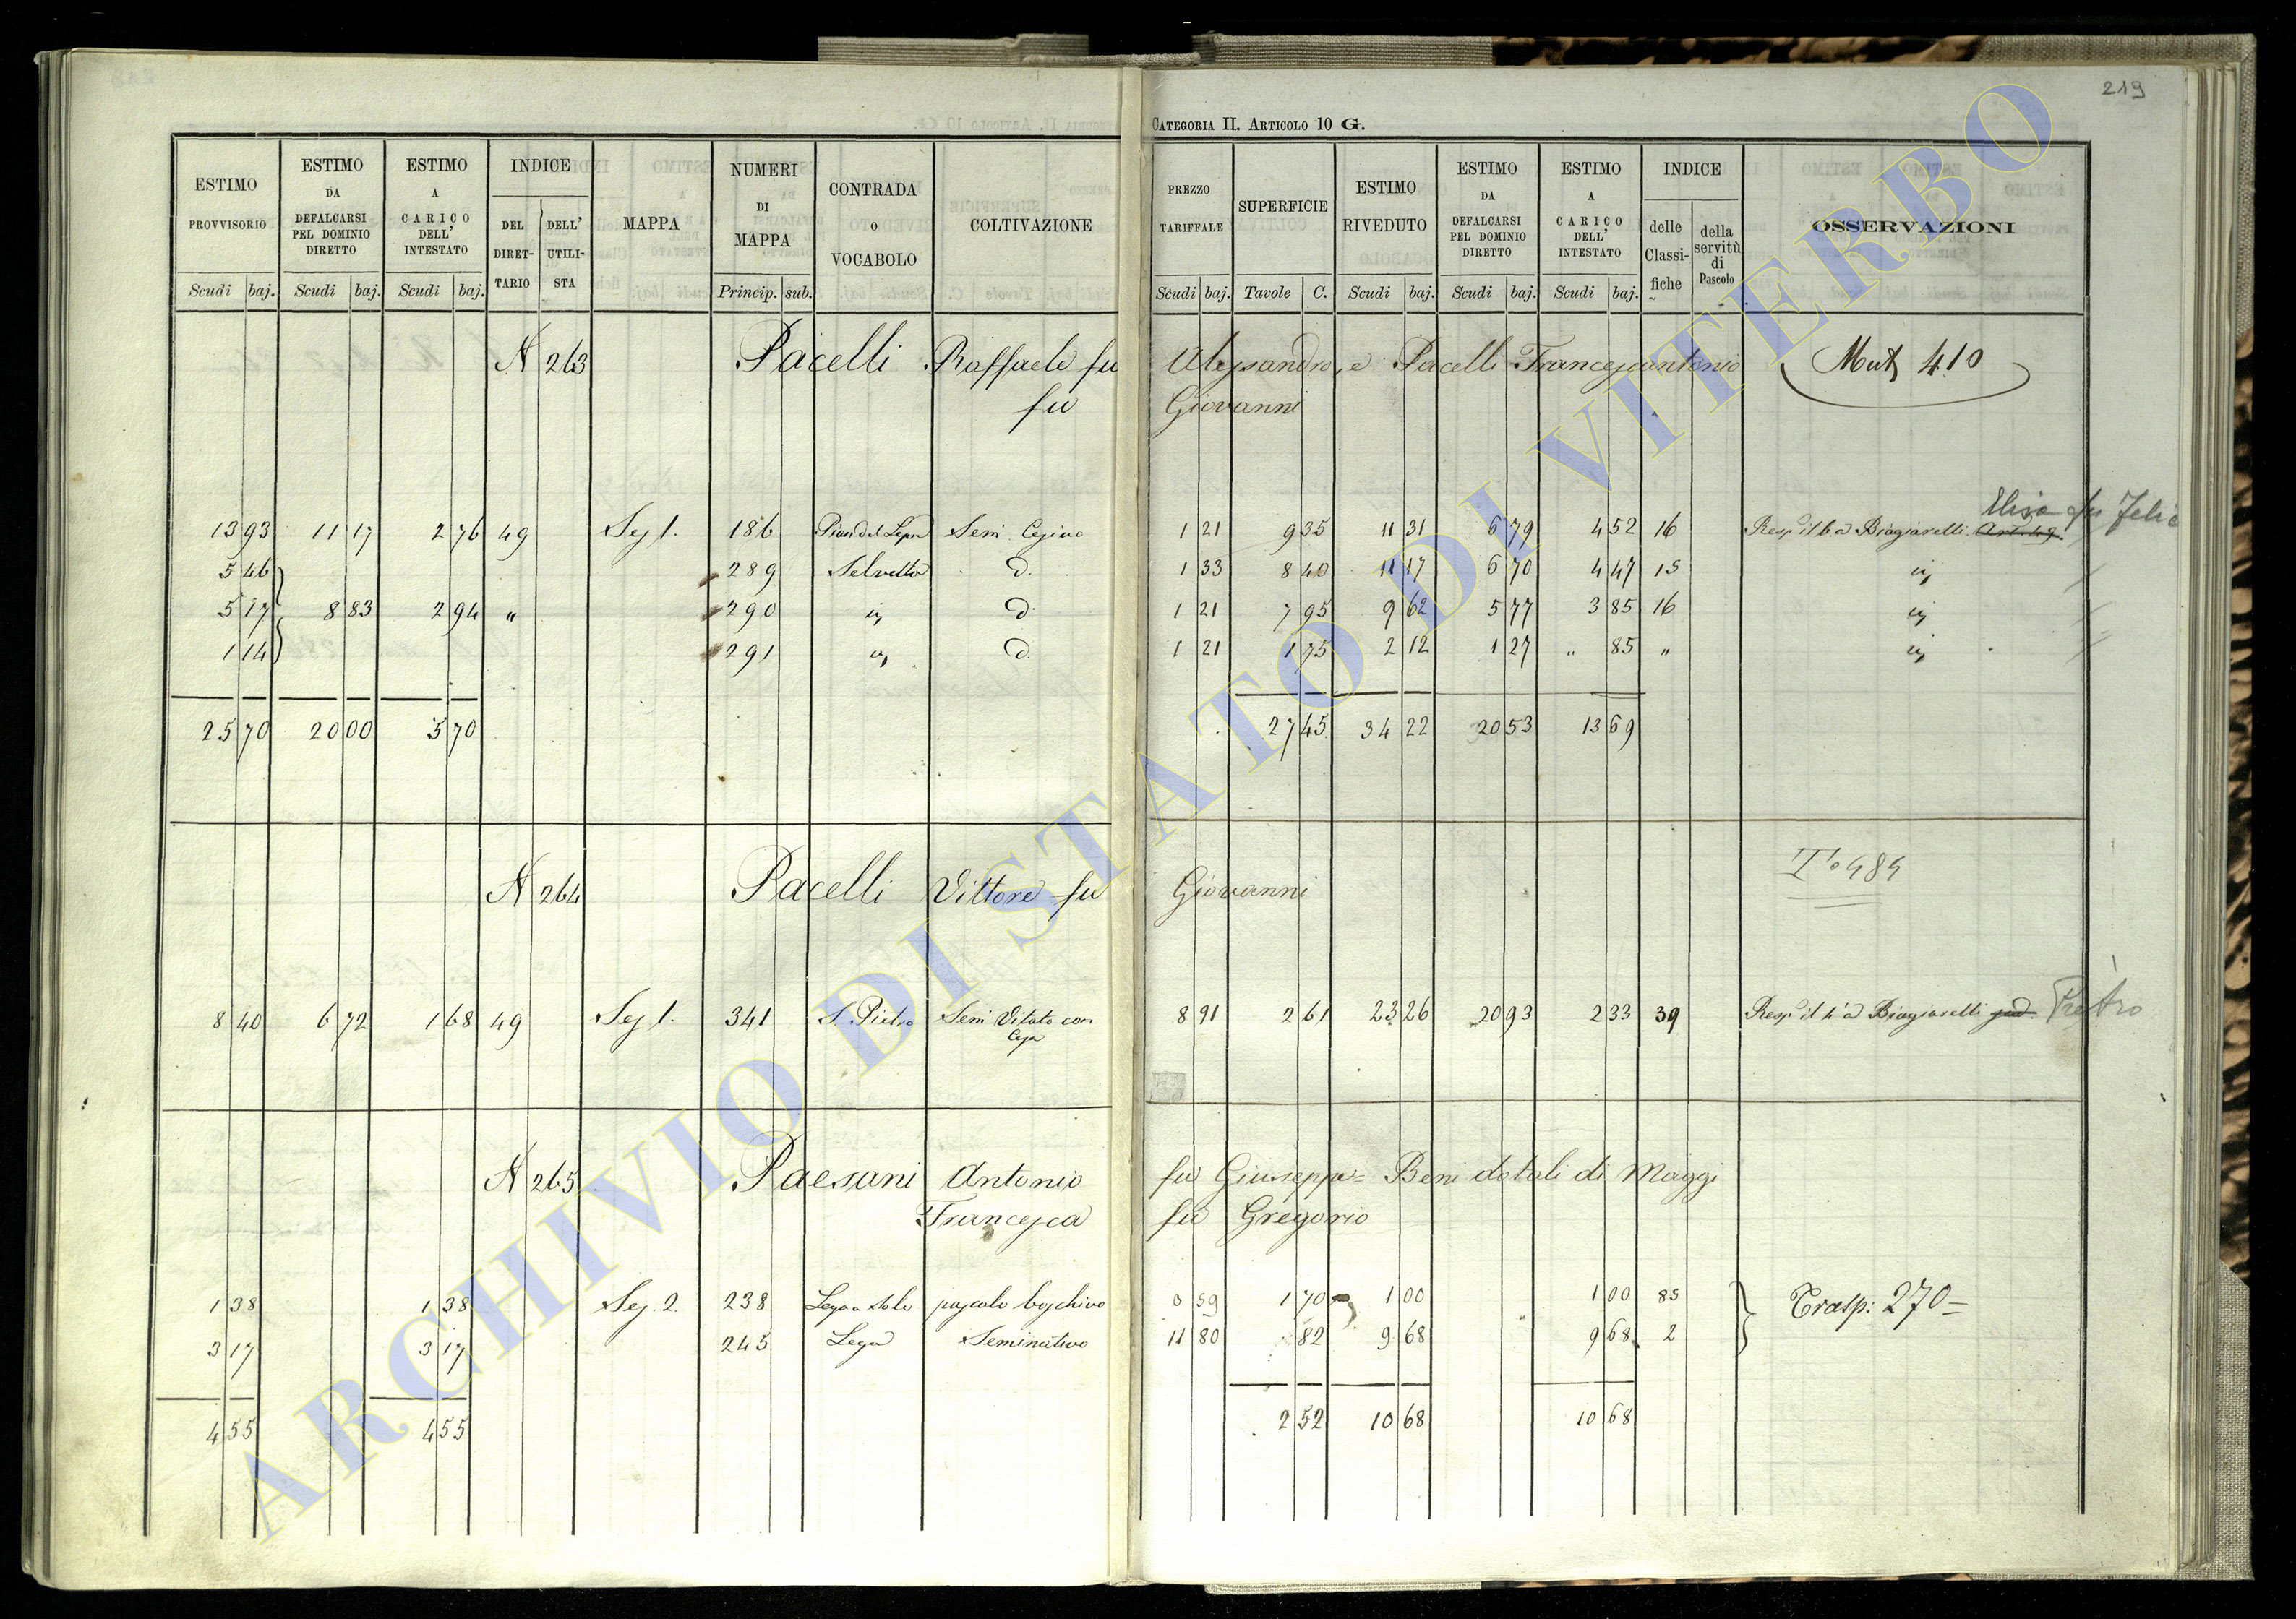 219
CATEGORIA II. ARTICOLO 10 G.
ESTIMO PROVVISORIO Scudi baj. ESTIMO DA DEFALCARSI PEL DOMINIO DIRETTO Scudi baj. ESTIMO A CARICO DELL' INTESTATO Scudi baj. INDICE DEL DIRET-TARIO DELL' UTILI-STA MAPPA NUMERI DI MAPPA Princip. sub. CONTRADA O VOCABOLO COLTIVAZIONE PREZZO TARIFFALE Scudi baj. SUPERFICIE Tavole C. ESTIMO RIVEDUTO Scudi baj. ESTIMO DA DEFALCARSI PEL DOMINIO DIRETTO Scudi baj. ESTIMO A CARICO DELL' INTESTATO Scudi baj. INDICE delle Classi-fiche della servitù di Pascolo OSSERVAZIONI
N 263 Pacelli Raffaele fu Alessandro, e Pacelli Francescantonio Mut 410
fu Giovanni
Elisa fu Felice
13 93 11 17 2 76 49 Sez 1. 186 Sem. 1 21 9 35 11 31 6 79 4 52 16 Biagiarelli
5 46 289 Selvetta d. 1 33 8 40 11 17 6 70 4 47 15
5 17 8 83 2 94 " 290 d. 1 21 7 95 9 62 5 77 3 85 16
1 14 291 d. 1 21 1 75 2 12 1 27 " 85 "
25 70 20 00 5 70 27 45 34 22 20 53 13 69
N 264 Pacelli Vittore fu Giovanni To 484
8 40 6 72 1 68 49 Sez 1. 341 S. Pietro Sem Vitato con 8 91 2 61 23 26 20 93 2 33 39 Biagiarelli Pietro
N 265 Paesani Antonio fu Giuseppe = Beni dotali di Maggi
Francesca fu Gregorio
1 38 1 38 Sez. 2. 238 pascolo boschivo 0 59 1 70 1 00 1 00 85 Trasp: 270=
3 17 3 17 245 Lega Seminativo 11 80 82 9 68 9 68 2
4 55 4 55 2 52 10 68 10 68
ARCHIVIO DI STATO DI VITERBO